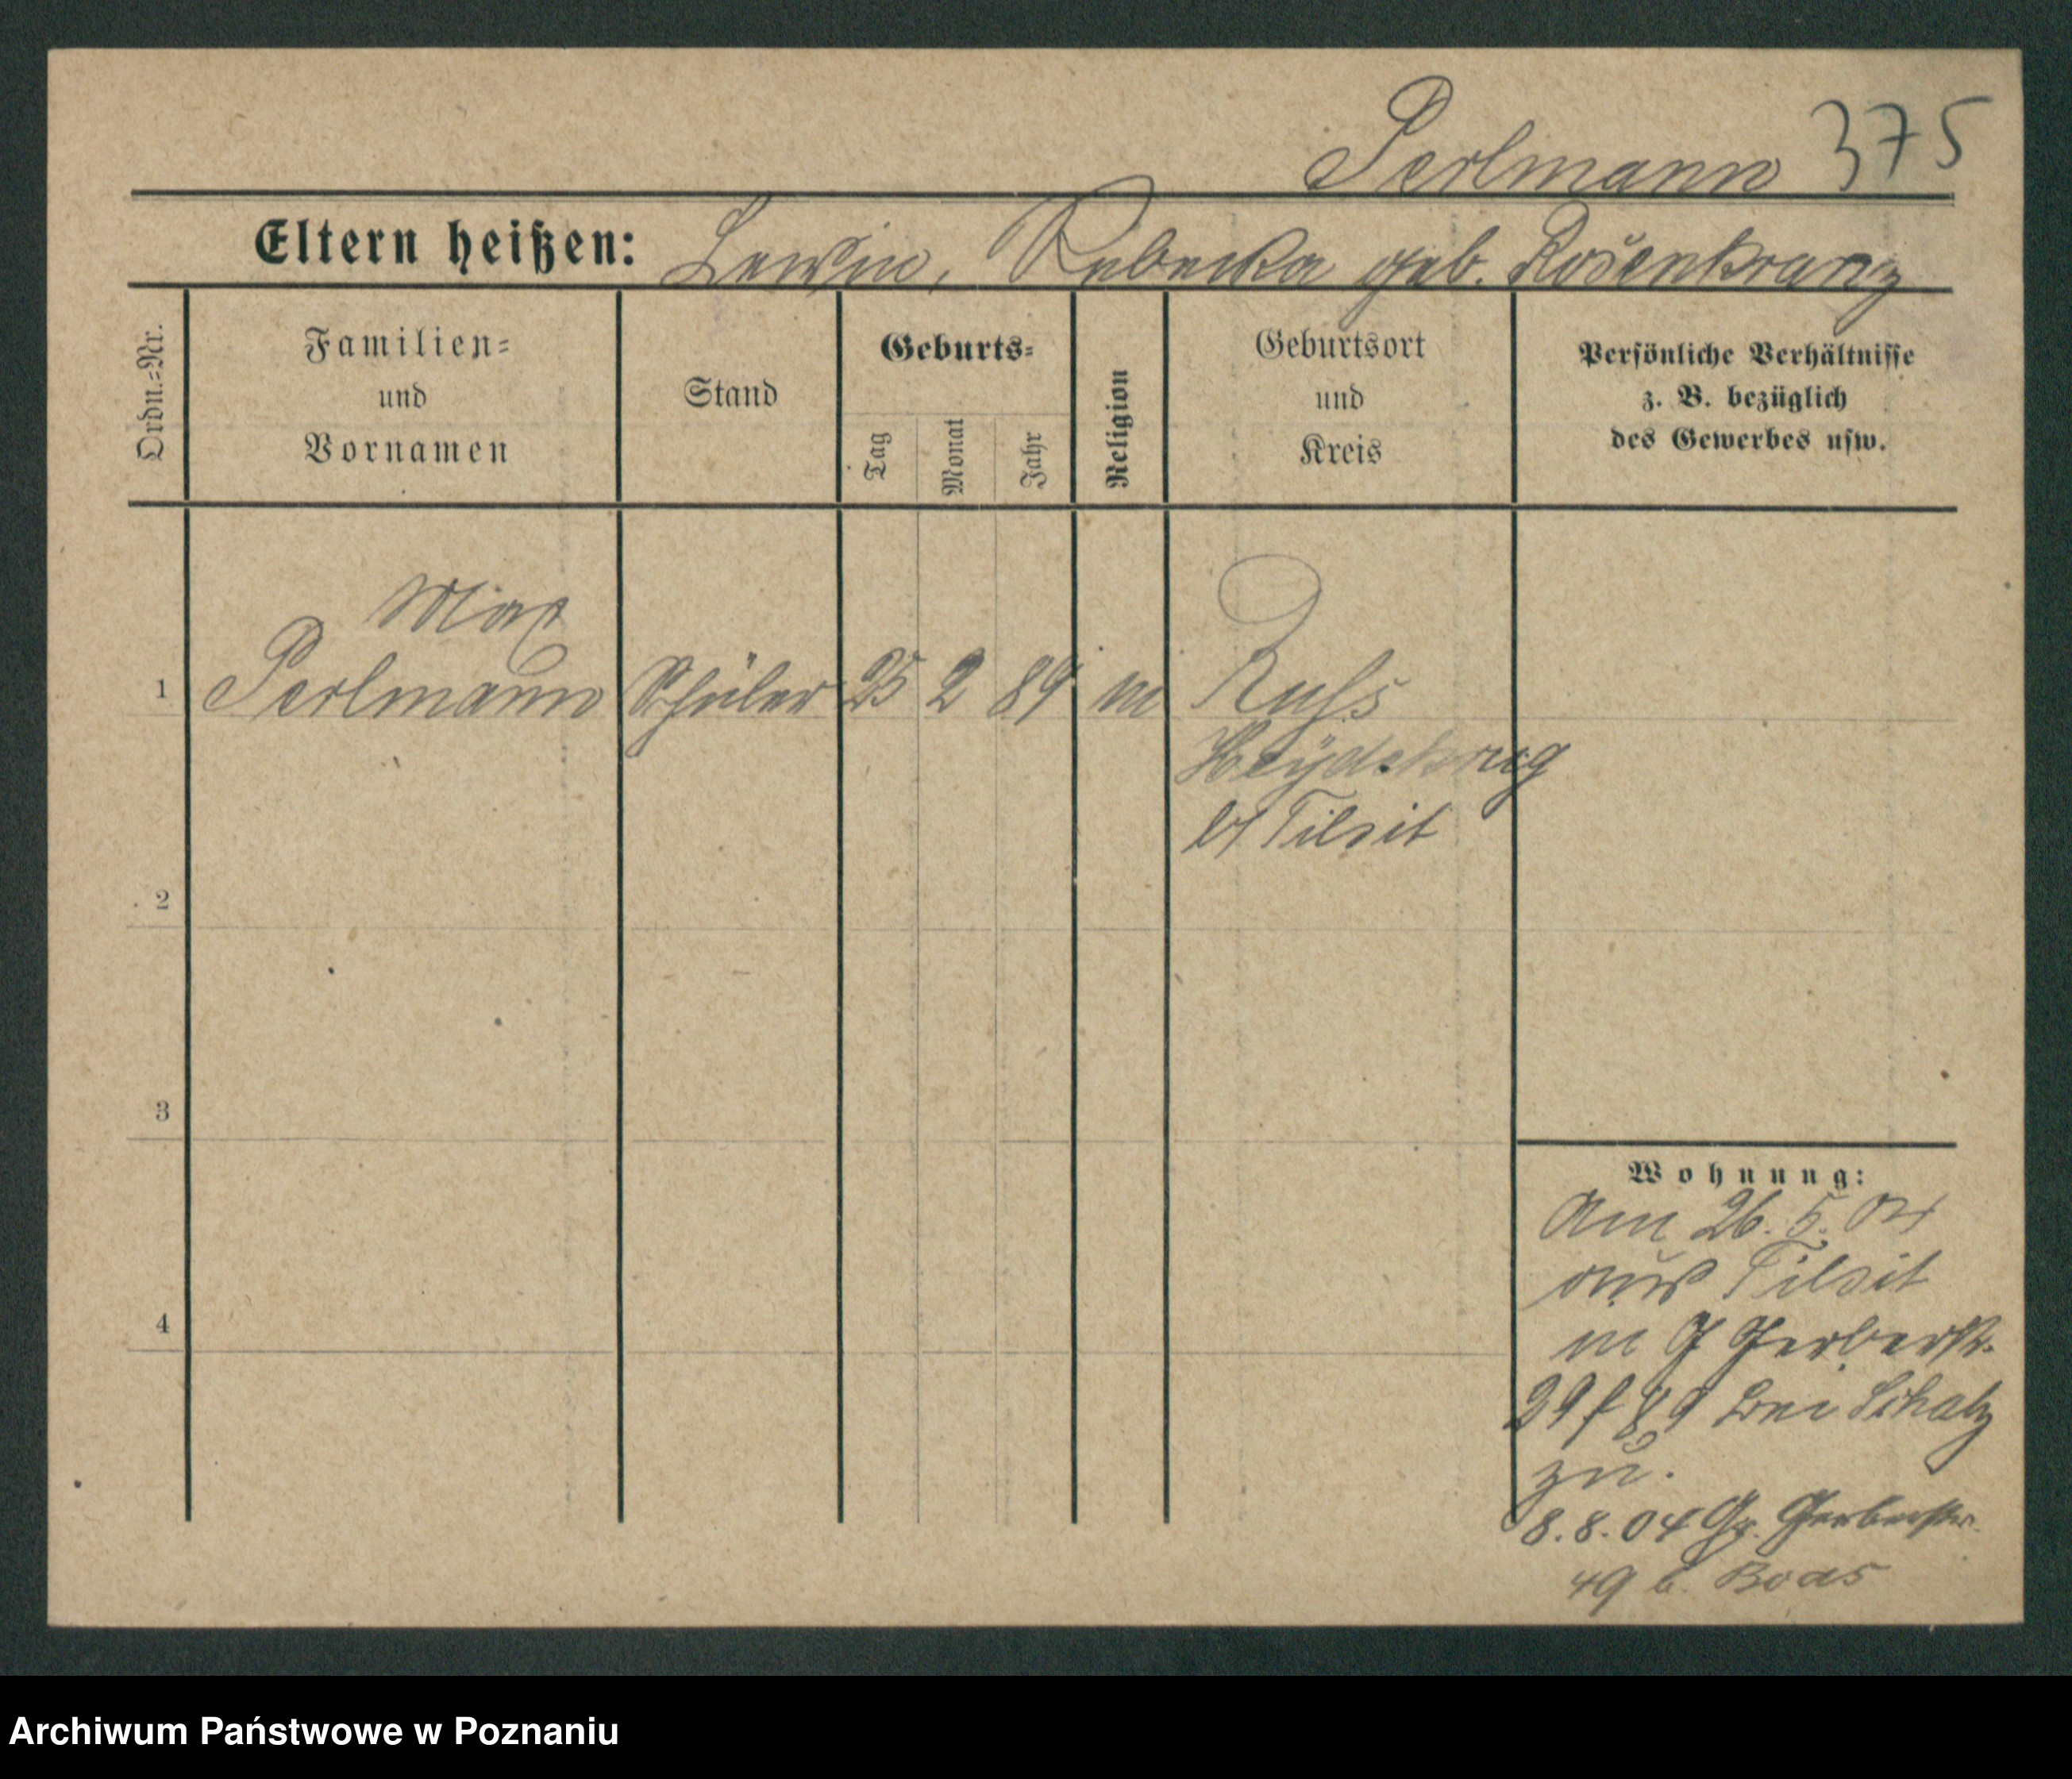 Perlmann 375
Eltern heißen: Lewin, Rebecka geb. Rosenkranz
Ordn.=Nr.
Familien=
und
Vornamen
Stand
Geburts=
Tag
Monat
Jahr
Religion
Geburtsort
und
Kreis
Persönliche Verhältnisse
z. B. bezüglich
des Gewerbes usw.
Max
1 Perlmann Schüler 25 2 89 m Russ
Heydekrug
b/ Tilsit
2
3
4
Wohnung:
Am 26. 5. 04
aus Tilsit
in Gerberstr.
39 bei Schatz
zu.
8.8.04 Gr. Gerberstr.
49 b. Boas
Archiwum Państwowe w Poznaniu